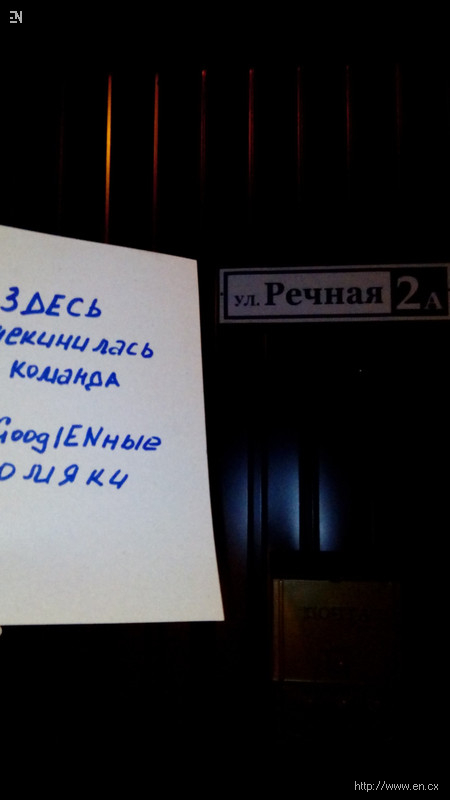 EN
ЗДЕСЬ
чекинилась
команда
GooglENные
ул. Речная 2А
http://www.en.cx